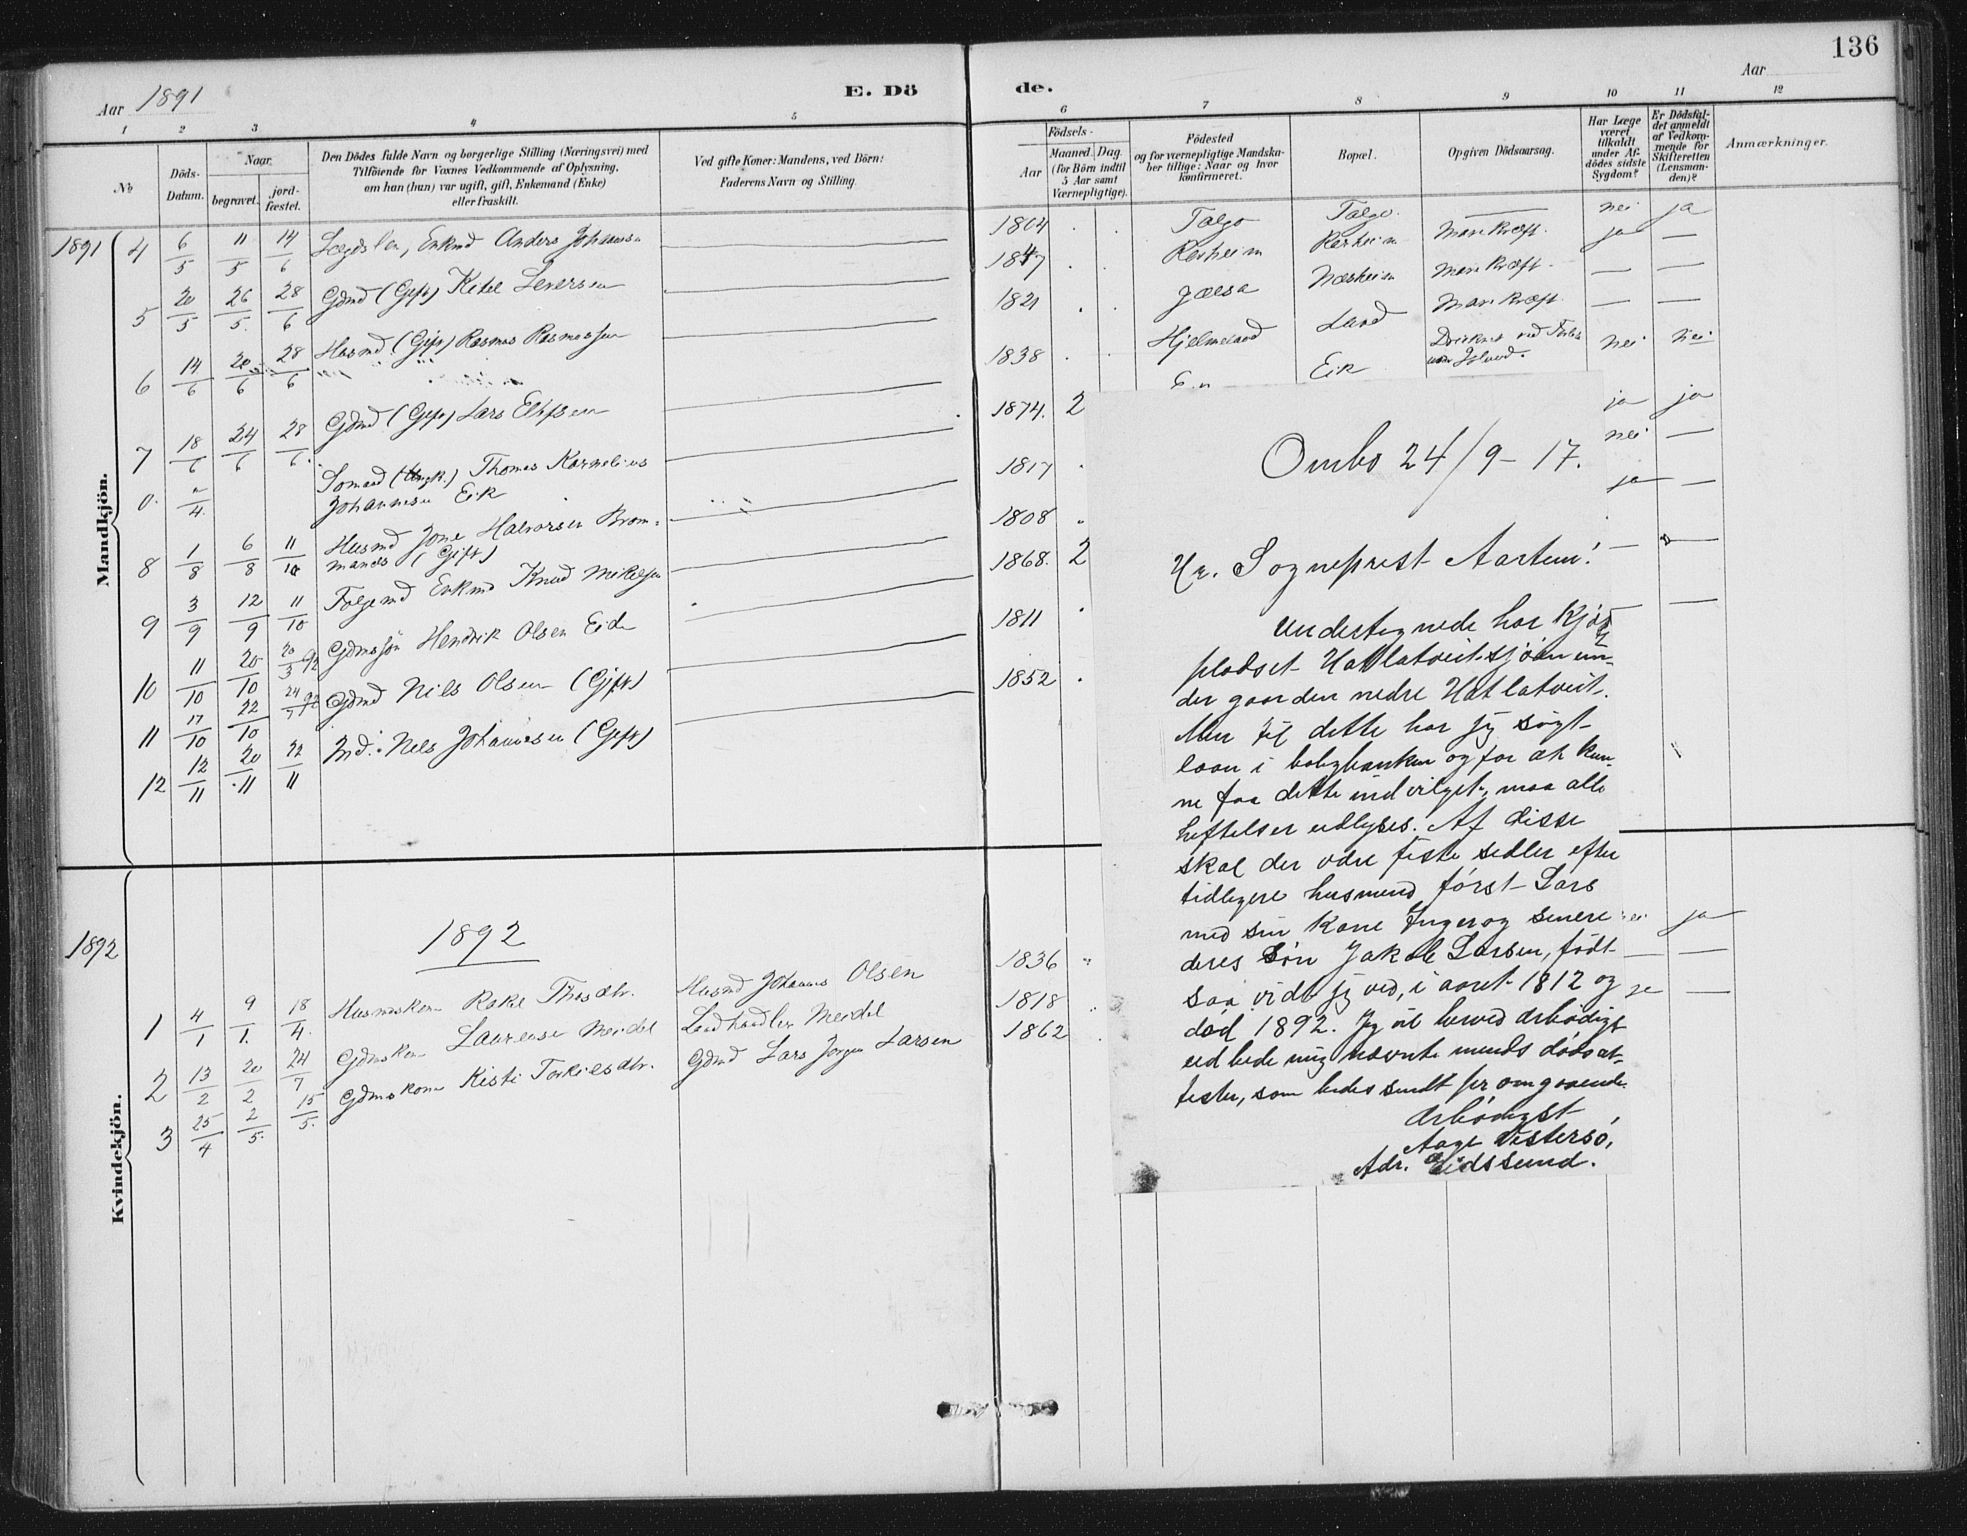 136
Aar 1891
E. Dö
de.
Aar
1 2 3 4 5 6 7 8 9 10 11 12
No
Döds-
Datum.
Naar
begravet.
jord-
fæstet.
Den Dödes fulde Navn og borgerlige Stilling (Næringsvei) med
Tilföiende for Voxnes Vedkommende af Oplysning,
om han (hun) var ugift, gift, Enkemand (Enke)
eller fraskilt.
Ved gifte Koner: Mandens, ved Börn:
Faderens Navn og Stilling.
Födsels-
Aar
Maaned. Dag.
(for Börn indtil
5 Aar samt
Værnepligtige).
Födested
og for værnepligtige Mandska-
ber tillige: Naar og hvor
konfirmeret.
Bopæl.
Opgiven Dödsaarsag.
Har Læge
været
tilkaldt
under Af-
dödes sidste
Sygdom?
Er Dödsfal-
det anmeldt
af Vedkom-
mende for
Skifteretten
(Lensman-
den)?
Anmærkninger.
Mandkjön.
1891 4 6/5 11/5 14/6 Lægdslem, Enkmd Anders Johannsn 1804 Talgø Talgø nei ja
5 20/5 26/5 28/6 Gdmd (Gift) Ketel Seversen 1847 Marekræft ja —
6 14/6 20/6 28/6 Husmd (Gift) Rasmus Rasmussen 1821 Jælsa Næsheim Mavekræft — —
7 18/6 24/6 28/6 Gdmd (Gift) Lars 1838 Hjelmeland Land Mavekræft — —
0. /4 Sømand (Ungk.) Thomas Kornelius
Johannesen Eik 1874. 2 Eik Druknet ved Forlis nei nei
8 1/8 6/8 11/10 Husmd Jone Halvorsen Brom-
manes (Gift) 1817 ja ja
9 3/9 12/9 11/10 Folgemd Enkmd Knud Mikelsen 1808 nei —
10 11/10 20/10 20/3 92 Gdmssön Hendrik Olsen Eide 1868. 2 ja —
11 17/10 22/10 24/7 92 Gdmd Nils Olsen (Gift) 1811 — —
12 12/11 20/11 22/11 Ind. Nels Johannesen (Gift) 1852 — —
Kvindekjön.
1892
1892
1 4/1 9/1. 18/4. Husmskone Rakel Thosdtr. Husmd Johannes Olsen 1836 nei ja
2 13/2 20/2 24/7 Gdmskone Laurense Meidel Landhandler Meidel 1818 — —
3 25/4 2/5. 15/5. Gdmskone Kisti Torkilsdtr. Gdmd Lars Jørgen Larsen 1862 ja —
Ombo 24/9-17.
Hr. Sogneprest Aartun!
Undertegnede har kjøpt
pladset Hatlatveitsjøen un-
der gaarden nedre Hatlatveit.
Men til dette har jeg søgt
laan i boligbanken og for at kun-
ne faa dette indvilget, maa alle
heftelser udlyses. Af disse
skal der være feste sedler efter
tidligere husmend først Lars
med sin kone Inger og senere
deres Søn Jakob Larsen, født
saa vidt jeg ved, i aaret 1812 og
død 1892. Jeg vil herved ærbødigst
udbede mig nævnte mends dødsat-
tester, som bedes sendt per omgaaende.
Ærbødigst
Aage Vestersø,
Adr. Eidssund.